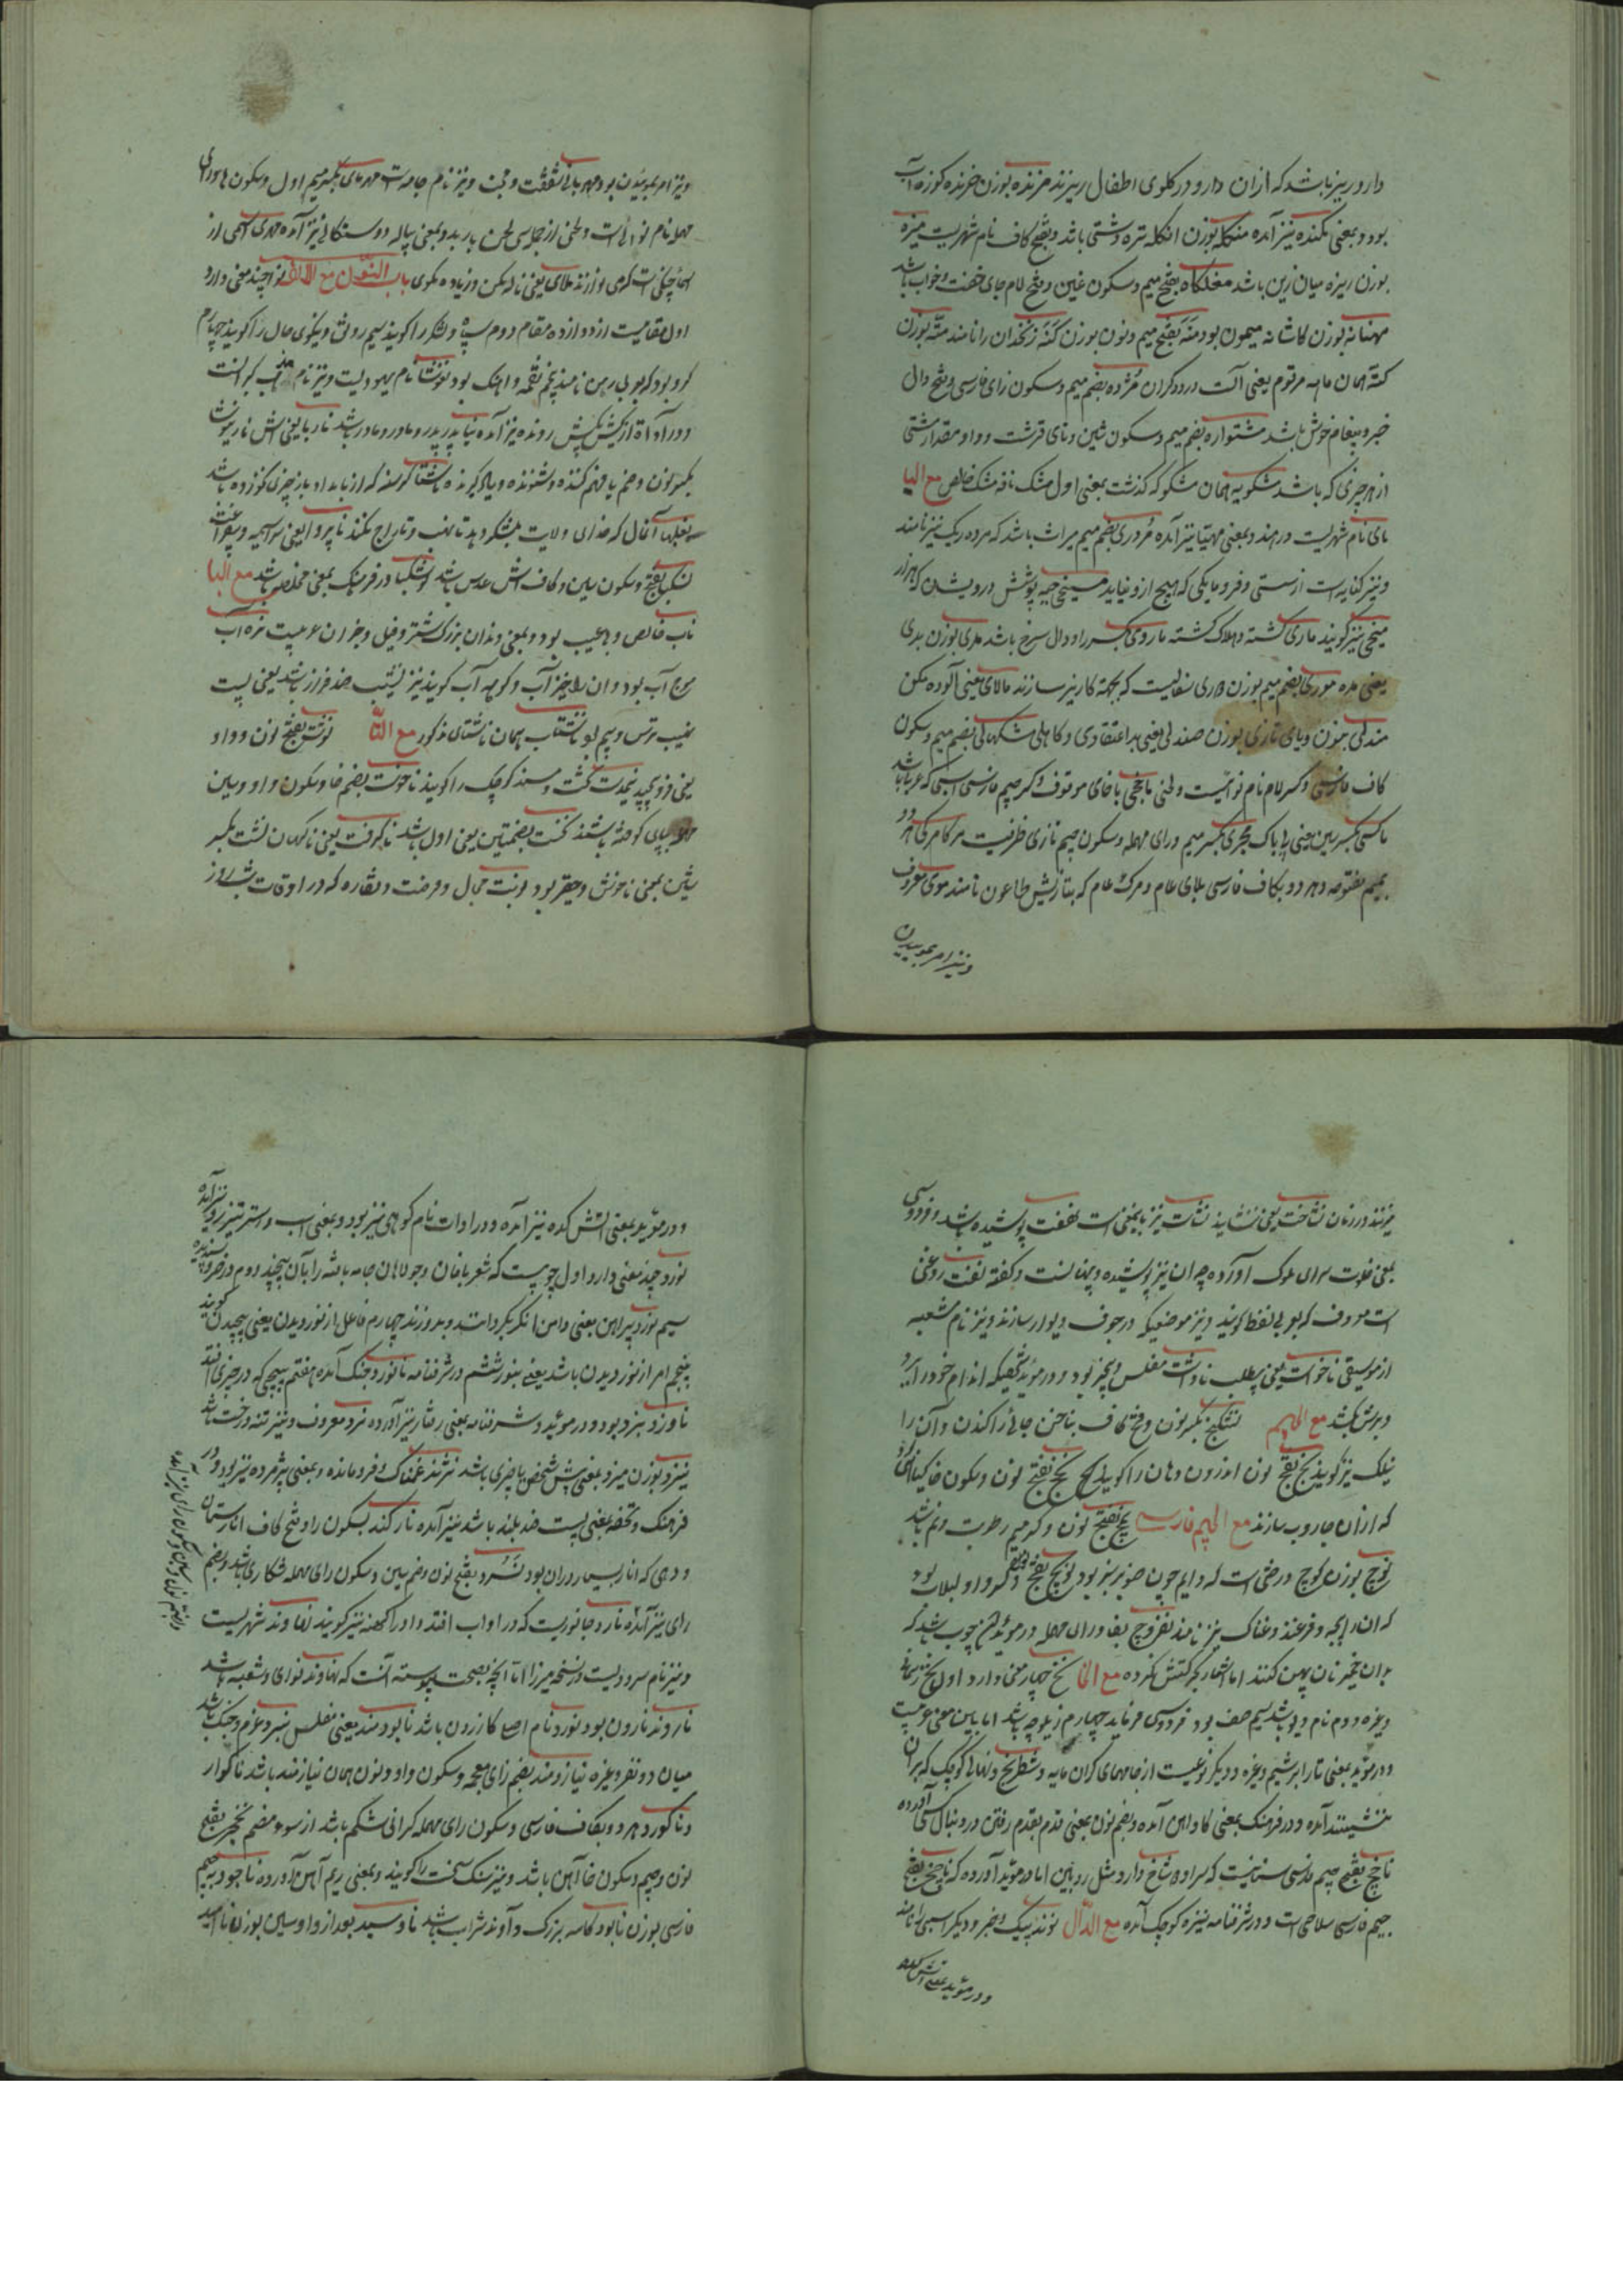 دارو ریز باشد که ازان دارو در کلوی اطفال ریزند مرزنده بوزن خرنده کوزه آب
بود و بمعنی مکنده نیز آمده منکله بوزن انکله تره دشتی باشد و بفتح کاف نام شهریست میزه
بوزن ریزه میان زین باشد مغلکاه بفتح میم و سکون غین و فتح لام جای خفت و خواب باشد
مهنانه بوزن کاشانه میمون بود منه بفتح میم و نون بوزن کنه زنخدان را نامند مته بوزن
کته همان ماهه مرقوم یعنی آلت درودکران مژده بضم میم و سکون زای فارسی و فتح دال
خبر و پیغام خوش باشد مشتواره بضم میم و سکون شین و تای قرشت و واو مقدار مشتی
از هر چیزی که باشد مشکویه همان مشکو که کذشت بمعنی اول مشک نافه مشک خالص مع الیا
مای نام شهریست در هند و بمعنی مهیا نیز آمده مردری بضم میم میراث باشد که مرده ریک نیز نامند
و نیز کنایه است از سستی و فرومایکی که هیچ ازو نیاید میخی جبه پوشش درویشان که هزار
میخی نیز کویند ماری کشته و هلاک کشته ماروی بکسر را و دال سرخ باشد مدی بوزن بدی
یعنی مده موری بضم میم بوزن دوری سفالیست که بجهة کاریز سازند مالای یعنی آلوده مکن
مندلی بنون و یای تازی بوزن صندلی یعنی بداعتقادی و کاهلی مشکمالی بضم میم و سکون
کاف فارسی و کسر لام نام نوائیست و لحنی ماخچی با خای موقوف و کسر جیم فارسی اسبی که عربی باشد
ماکسی بکسر سین یعنی پاپاک مجری بکسر میم و رای مهمله و سکون جیم تازی ظرفیست مرکامرکی هر دو
بمیم مفتوحه و هر دو بکاف فارسی بلای عام و مرک عام که بتازیش طاعون نامند موی معروف
و نیز امر بموییدن
و نیز امر بموییدن بود مهربانی شفقت و محبت و نیز نام جامه است مهرمای بکسر میم اول و سکون ها و رای
مهمله نام نوائی است و لحنی از جمله سی لحن باربد و بمعنی پیاله و دوستکانی نیز آمده مهدی اسمی از
اسماء چنکی است کرمی و ارزند ملای یعنی ناله مکن و زیاده مکوی باب النون مع الالف نوا چند معنی دارد
اول مقامیست از دوازده مقام دوم سپاه و لشکر را کویند سیم رونق و نیکوی حال را کویند چهارم
کرو بود که بعربی رهن نامند پنجم نغمه و آهنک بود نوشا نام یهودیست و نیز نام مذهب کبرانست
و در اداة از کیش بکیش رونده نیز آمده نیا پدر پدر و مادر مادر باشد ناربا یعنی آش نار نیوشا
بکسر نون و ضم یا فهم کننده و شنونده و یاد کیرنده ناشتا کرسنه که از بامداد باز چیزی نخورده باشد
نغلبها آنمال که خدای ولایت بلشکر دهد تا نهب و تاراج نکنند ناپروا یعنی سراسیمه و بیفراغت
نسکبا بفتح و سکون سین و کاف آش عدس باشد نوشکبا در فرهنک بمعنی مخلص باشد مع البا
ناب خالص و بی عیب بود و بمعنی دندان بزرک شتر و فیل و جز آن عربیست نره آب
موج آب بود و آن را خیز آب و کوهه آب کویند نیز نشیب ضد فراز باشد یعنی پست
نهیب ترس و بیم بود ناشتاب همان ناشتای مذکور مع التا نوشت بفتح نون و واو
یعنی فرو پیچید نیمدست تخت و مسند کوچک را کویند ناخوست بضم خا و سکون واو و سین
مهمله بپای کوفته باشند نخست بضمتین یعنی اول باشد ناکرفت یعنی ناکهان نشت بکسر
شین بمعنی ناخوش و حقیر بود نوبت مجال و فرصت و نقاره که در اوقات شبانروز
میزنند در زمان نشاخت یعنی نشانید نشات نیز باینمعنی است نهفت پوشیده باشد و فردوسی
بمعنی خلوت سرای ملوک آورده چه آن نیز پوشیده و پنهانست و کفته نفت روغنی
است معروف که بعربی نفط کویند و نیز موضعیکه در جوف دیوار سازند و نیز نام شعبه
از موسیقی ناخواست یعنی بیطلب ناداشت مفلس و بیچیز بود و در مؤید شخصیکه اندام خود را ببرد
و برش بکشد مع الجیم نشکنج بکسر نون و فتح کاف بناخن جائی را کندن و آن را
نیلک نیز کویند نج بفتح نون اندرون دهان را کویند نخج بفتح نون و سکون خا کیاهی بود
که ازان جاروب سازند مع الجیم فارسی نمچ بفتح نون و کسر میم رطوبت و نم باشد
نوچ بوزن کوچ درختی است که دایم چون صنوبر سبز بود نویچ بفتح نون و کسر واو لبلاب بود
که آن را لحیه و فرغند و عناک نیز نامند نغروچ بغا و رای مهمله در مؤید آن چوب باشد که
بدان خمیر نان پهن کنند اما اشعار بحرکتش نکرده مع الخا نخ چهار معنی دارد اول نخ ریسمان
و غیره دوم نام دیو باشد سیم صف بود فردوسی فرماید چهارم زیلوچه باشد اما باین معنی عربیست
و در مؤید بمعنی تار ابریشم و غیره و دیکر نوعیست از جامهای کران مایه و شطرنج و نهالی کوچک که بر آن
نشینند آمده و در فرهنک بمعنی کاو آهن آمده و بضم نون بمعنی قدم بقدم رفتن در دنبال کسی آورده
ناچخ بفتح جیم فارسی سنانیست که سر او دو شاخ دارد مثل زوبین اما در مؤید آورده که ناچخ بفتح
جیم فارسی سلاحی است و در شرفنامه نیزه کوچک آمده مع الدال نوند پیک و خبر و دیکر اسبی را نامند
و در مؤید بمعنی آتش کده
و در مؤید بمعنی آتش کده نیز آمده و در ادات نام کوهی نیز بود و بمعنی اسب و استر تیز رو نیز آمده
نورد چند معنی دارد اول چوبیست که شعربافان و جولاهان جامه بافته را بآن پیچند دوم در خور و پسندیده
سیم نورد پیراهن یعنی دامن آنکه بکردانند و بدوزند چهارم فاعل از نوردیدن یعنی پیچیدن کویند
پنجم امر از نوردیدن باشد یعنی بنورد ششم در شرفنامه ناورد و جنک آمده هفتم پیچی که در چیزی افتد
ناورد نبرد بود و در مؤید و شرفنامه بمعنی رفتار نیز آورده نرد معروف و نیز تنه درخت باشد
نیرد بوزن میرد بمعنی پیش شخص یا چیزی باشد نژند غمناک و فرومانده و بمعنی پژمرده نیز بود و در
فرهنک و تحفه بمعنی پست ضد بلند باشد نیز آمده نارکند بسکون را و فتح کاف انارستان
و دهی که انار بسیار در آن بود نسرد بفتح نون و ضم سین و سکون رای مهمله شکاری باشد و بضم
رای نیز آمده نارد جانوریست که در اواب افتد و او را کهنه نیز کویند نهاوند شهریست
و نیز نام سرودیست در نسخه میرزا اما آنچه بصحت پیوسته آنست که نهاوند نوای و شعبه باشد
ناروند نارون بود نورد نام اصل کازرون باشد نابودمند یعنی مفلس نبرد عزم و جنک باشد
میان دو نفر و غیره نیازومند بضم زای معجمه و سکون واو و نون همان نیازمند باشد ناکوار
و ناکورد هر دو بکاف فارسی و سکون رای مهمله کرانی شکم باشد از سوء هضم نجخر بفتح
نون و جیم و سکون خا آهن باشد و نیز سنک سخت را کویند و بمعنی ریم آهن آورده ناجود بجیم
فارسی بوزن نابود کاسه بزرک و آوند شراب باشد ناوسید بعد از واو سین بوزن ناامید